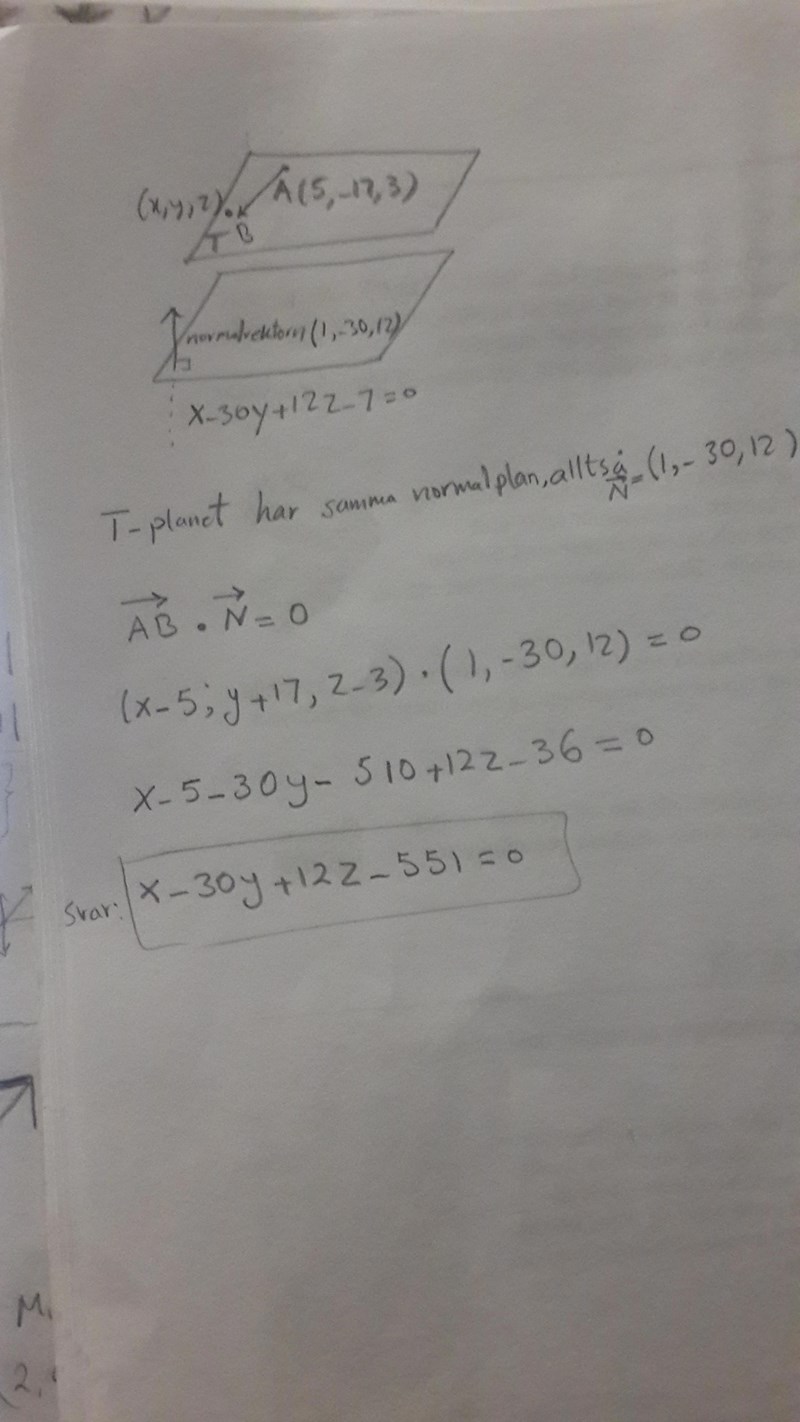 (x,y,z)
A(5,-17,3)
T B
normalvektorn(1,-30,12)
x-30y+12z-7=0
T-planet har samma normalplan, alltså N=(1,-30,12)
AB • N = 0
(x-5; y+17, z-3) • (1,-30,12) = 0
x-5-30y- 510+12z-36=0
Svar: x-30y+12z-551=0
M
2,